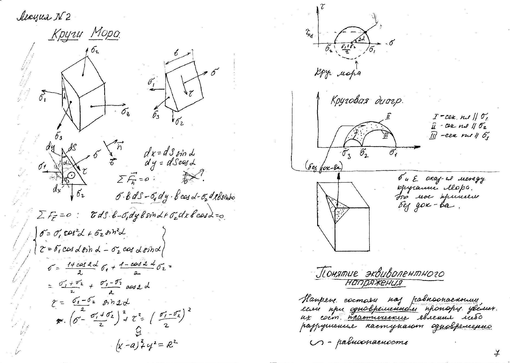 Лекция №2
Круги Мора
dx = dS sin α
dy = dS cos α
σ·b dS - σ₁dy·b cos α - σ₂dx b sin α = 0
τ dS·b - σ₁dy b sin α + σ₂dx b cos α = 0
σ = σ₁cos²α + σ₂sin²α
τ = σ₁cos α sin α - σ₂cos α sin α
σ = (1+cos2α)/2 σ₁ + (1-cos2α)/2 σ₂ =
= (σ₁+σ₂)/2 + (σ₁-σ₂)/2 cos2α
τ = (σ₁-σ₂)/2 sin2α
(σ - (σ₁+σ₂)/2)² + τ² = ((σ₁-σ₂)/2)²
(x-a)² + y² = R²
Круг мора
Круговая диагр.
I - сек. пл || σ₁
II - сек. пл || σ₂
III - сек. пл || σ₃
(без док-ва)
между
кругами Мора.
Это мы примем
без док-ва.
Понятие эквивалентного
напряжения
Напряж. состоян наз равноопасными,
если при одновременном пропорц. увелич.
их сост. пластические явления либо
разрушения наступают одновременно
∽ - равноопасность
7